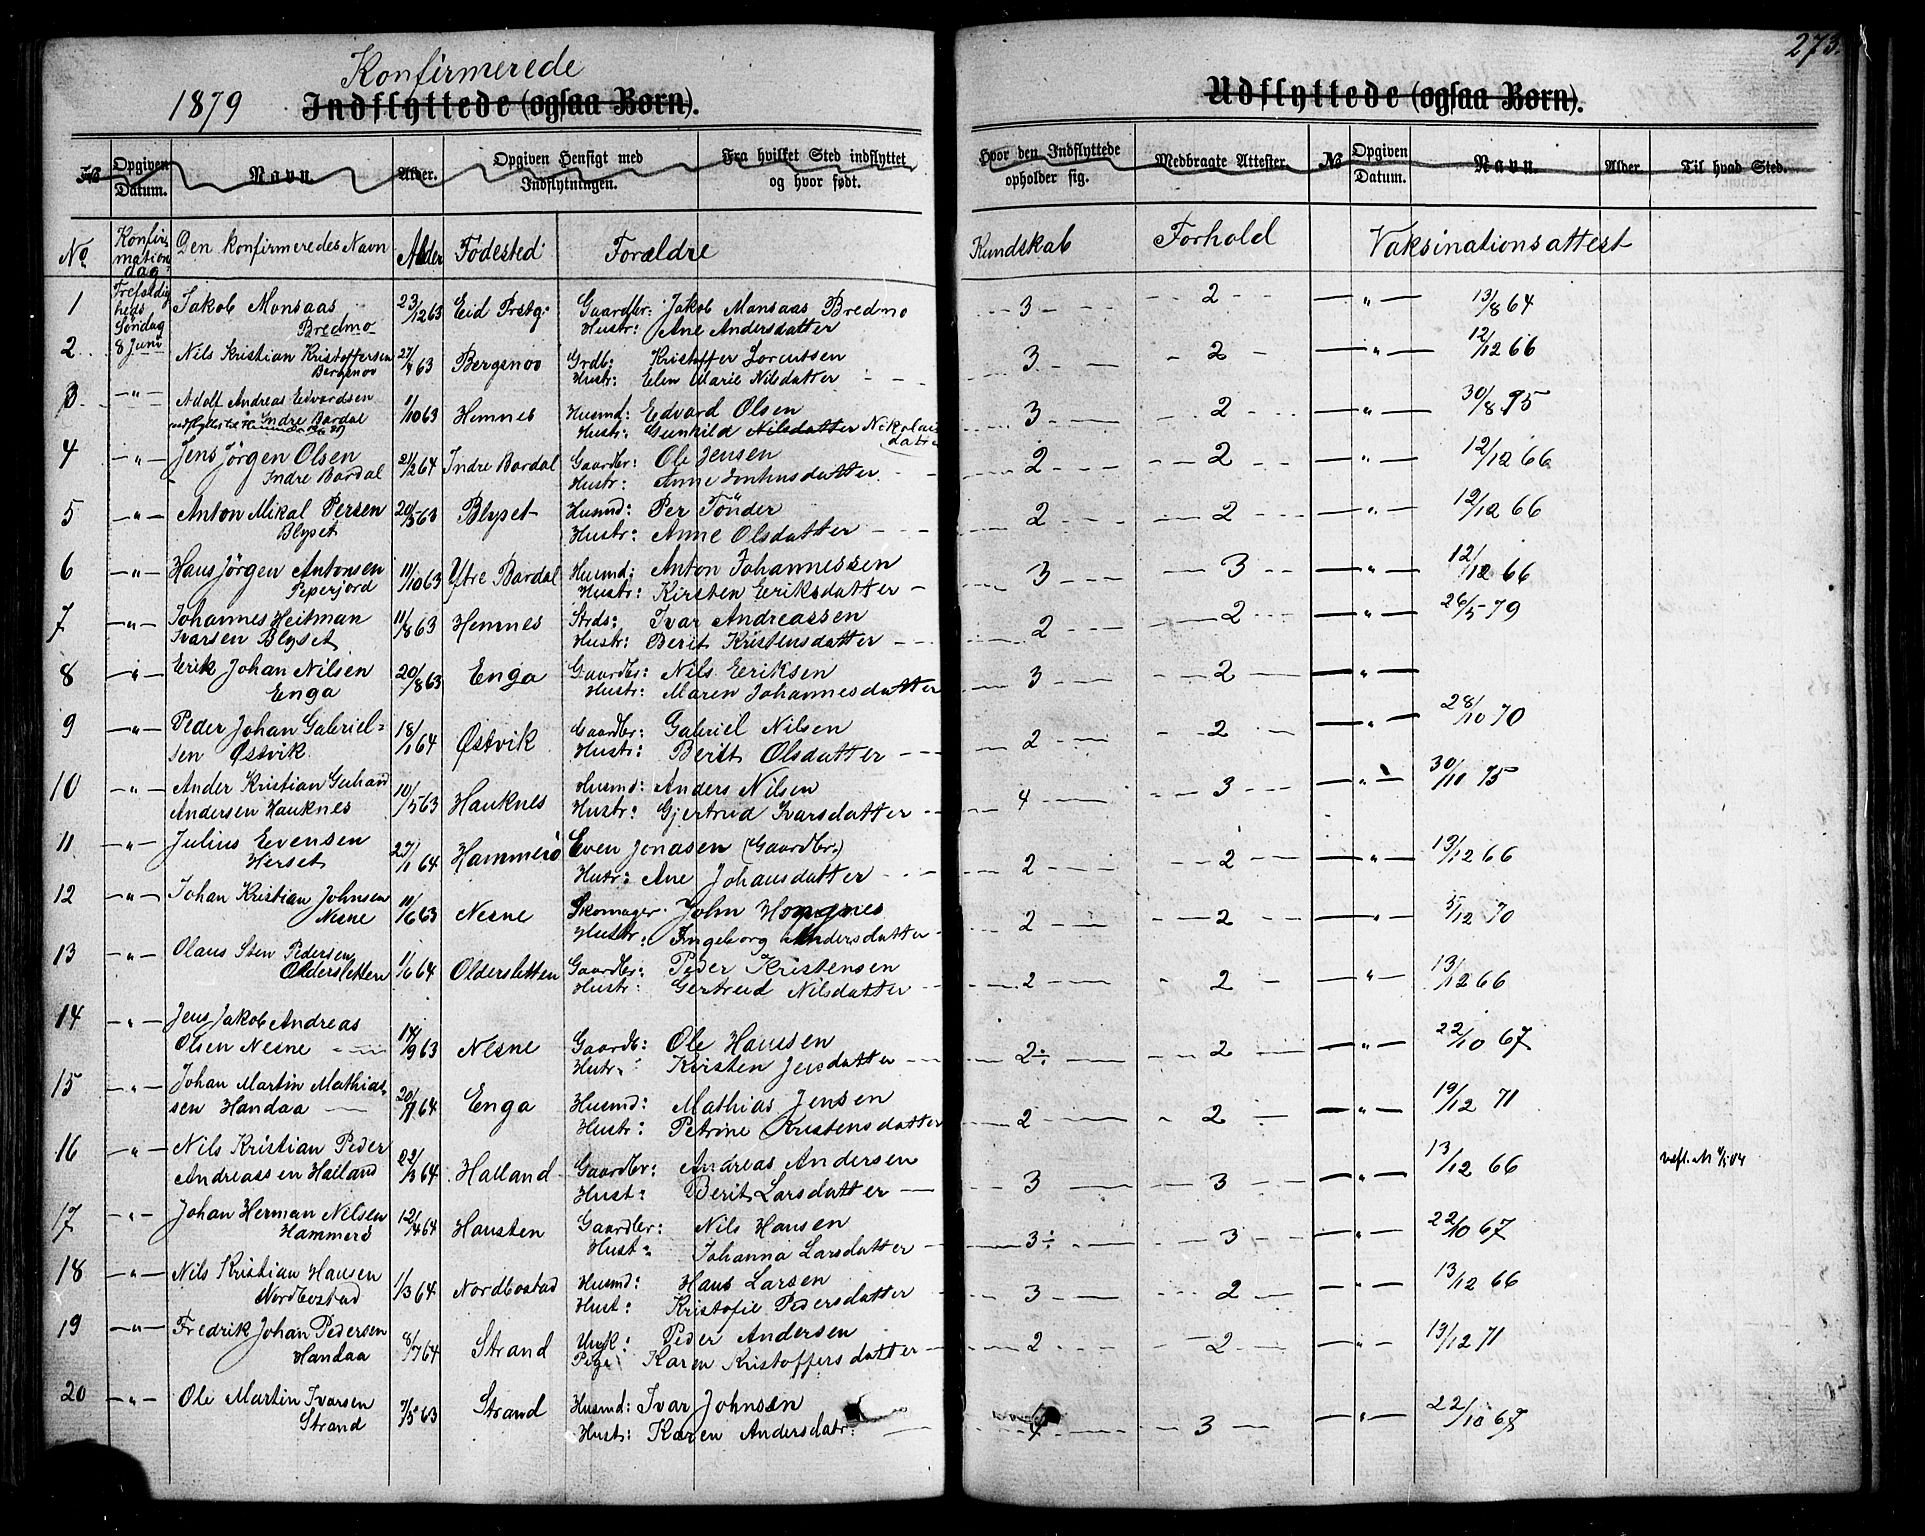 273.
Konfirmerede
1879 Indflyttede (ogsaa Børn).
Udflyttede (ogsaa Børn).
No Opgiven Datum. Navn Alder. Opgiven Hensigt med Indflytningen. Fra hvilket Sted indflyttet og hvor født.
Hvor den Indflyttede opholder sig. Medbragte Attester No Opgiven Datum. Navn. Alder. Til hvad Sted.
No Konfirmationsdag: Den konfirmeredes Navn Alder Fødested Forældre Kundskab Forhold Vaksinationsattest
1 Trefoldigheds Søndag 8 Juni Jakob Monsaas 23/12 63 Eid Prstg: Gaardbr: Jakob Monsaas Bredmo 3 2 " 13/8 64
Bredmo Hustr: Ane Andersdatter
2 Nils Kristian Kristoffersen 27/7 63 Bergsnov Grdb: Kristoffer Lorentsen 3 2 " 12/12 66
Bergsnov Hustr: Elen Marie Nilsdatter
3 " Adolf Andreas Edvardsen 11/10 63 Hemnes Husmd: Edvard Olsen 3 2 " 30/8 75
Indre Bardal Hustr: Gunhild Nilsdatter Nikolaidatter
4 " Jens Jörgen Olsen 21/2 64 Indre Bardal Gaardbr: Ole Jensen 2 2 " 12/12 66
Indre Bardal Hustr: Anne
5 " Anton Mikal Persen 20/5 63 Blyset Husmd: Per Tönder 2 2 " 12/12 66
Blyset Hustr: Anne Olsdatter
6 " Hans Jörgen Antonsen 11/10 63 Ytre Bardal Husmd: Anton Johannessen 3 3 " 12/12 66
Peperjord Hustr: Kirsten Eriksdatter
7 " Johannes Heitman 11/8 63 Hemnes Strds: Ivar Andreassen 2 2 " 26/5 79
Ivarsen Blyset Hustr: Berit Kristensdatter
8 " Erik Johan Nilsen 20/8 63 Enga Gaardbr: Nils Eeriksen 3 2 "
Enga Hustr: Maren Johannesdatter
9 " Peder Johan Gabriel= 18/1 64 Østvik Gaardbr: Gabriel Nilsen 2 2 " 28/10 70
sen Østvik Hustr: Berit Olsdatter
10 " Ander Kristian Guhard 10/5 63 Hauknes Husmd: Anders Nilsen 4 3 " 30/10 75
Andersen Hauknes Hustr: Gjertrud Ivarsdatter
11 " Julius Evensen 27/1 64 Hammerö Even Jonasen (Gaardbr.) 2 2 " 13/12 66
Herset Hutr: Ane Johansdatter
12 " Johan Kristian Johnsen 11/6 63 Nesne Skomager John 2 2 " 5/12 70
Nesne Hustr: Ingeborg Andersdatter
13 " Olaus Sten Pedersen 1/6 64 Oldersletten Gaardbr: Peder Kristensen 2 2 " 13/12 66
Oldersletten Hustr: Gertrud Nilsdatter
14 " Jens Jakob Andreas 14/9 63 Nesne Gaardb: Ole Hansen 2÷ 2 " 22/10 67
Olsen Nesne Hutr: Kirsten Jensdatter
15 " Johan Martin Mathias= 20/1 64 Enga Husmd: Mathias Jensen 2 2 " 19/12 71
sen Handaa Hustr: Petrine Kristensdatter
16 " Nils Kristian Peder 22/3 64 Halland Gaardbr: Andreas Andersen 3 3 " 13/12 66
Andreassen Halland Hust: Berit Larsdatter
17 " Johan Herman Nilsen 12/4 64 Hausten Gaardbr: Nils Hansen 3÷ 3 " 22/10 67
Hammerö Hust: Johanna Larsdatter
18 " Nils Kristian Hansen 1/3 64 Nordbostad Husmd: Hans Larsen 3 2 " 13/12 66
Nordbostad Hust: Kristofie Pedersdatter
19 " Fredrik Johan Pedersen 8/7 64 Strand Ungk: Peder Andersen 2 2 " 13/12 71
Handaa Pige: Karen Kristoffersdatter
20 " Ole Martin Ivarsen 7/5 63 Strand Husmd: Ivar Johnsen 4 3 " 22/10 67
Strand Hust: Karen Andersdatr: